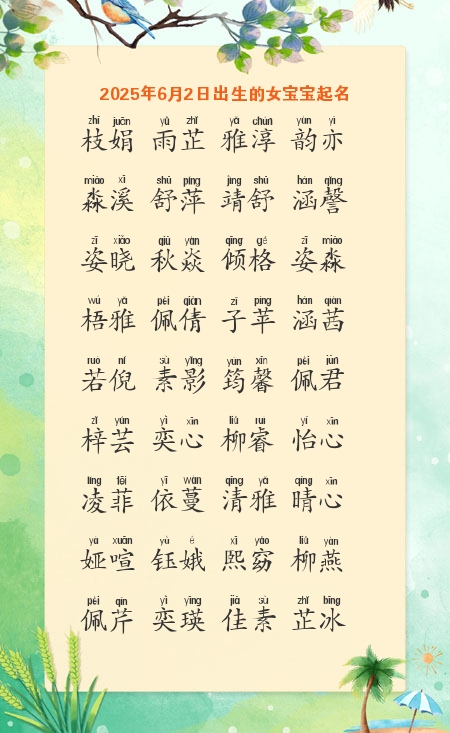 2025年6月2日出生的女宝宝起名
zhī juān yǔ zhǐ yǎ chún yùn yì
枝娟 雨芷 雅淳 韵亦
miǎo xī shū píng jìng shū hán qìng
淼溪 舒萍 靖舒 涵罄
zī xiǎo qiū yàn qīng gé zī miǎo
姿晓 秋焱 倾格 姿淼
wú yǎ pèi qiàn zǐ píng hán qiàn
梧雅 佩倩 子苹 涵茜
ruò ní sù yǐng yún xīn pèi jūn
若倪 素影 筠馨 佩君
zǐ yún yì xīn liǔ ruì yí xīn
梓芸 奕心 柳睿 怡心
líng fēi yī wàn qīng yǎ qíng xīn
凌菲 依蔓 清雅 晴心
yà xuān yù é xī yǎo liǔ yàn
娅喧 钰娥 熙窈 柳燕
pèi qín yì yīng jiā sù zhǐ bīng
佩芹 奕瑛 佳素 芷冰